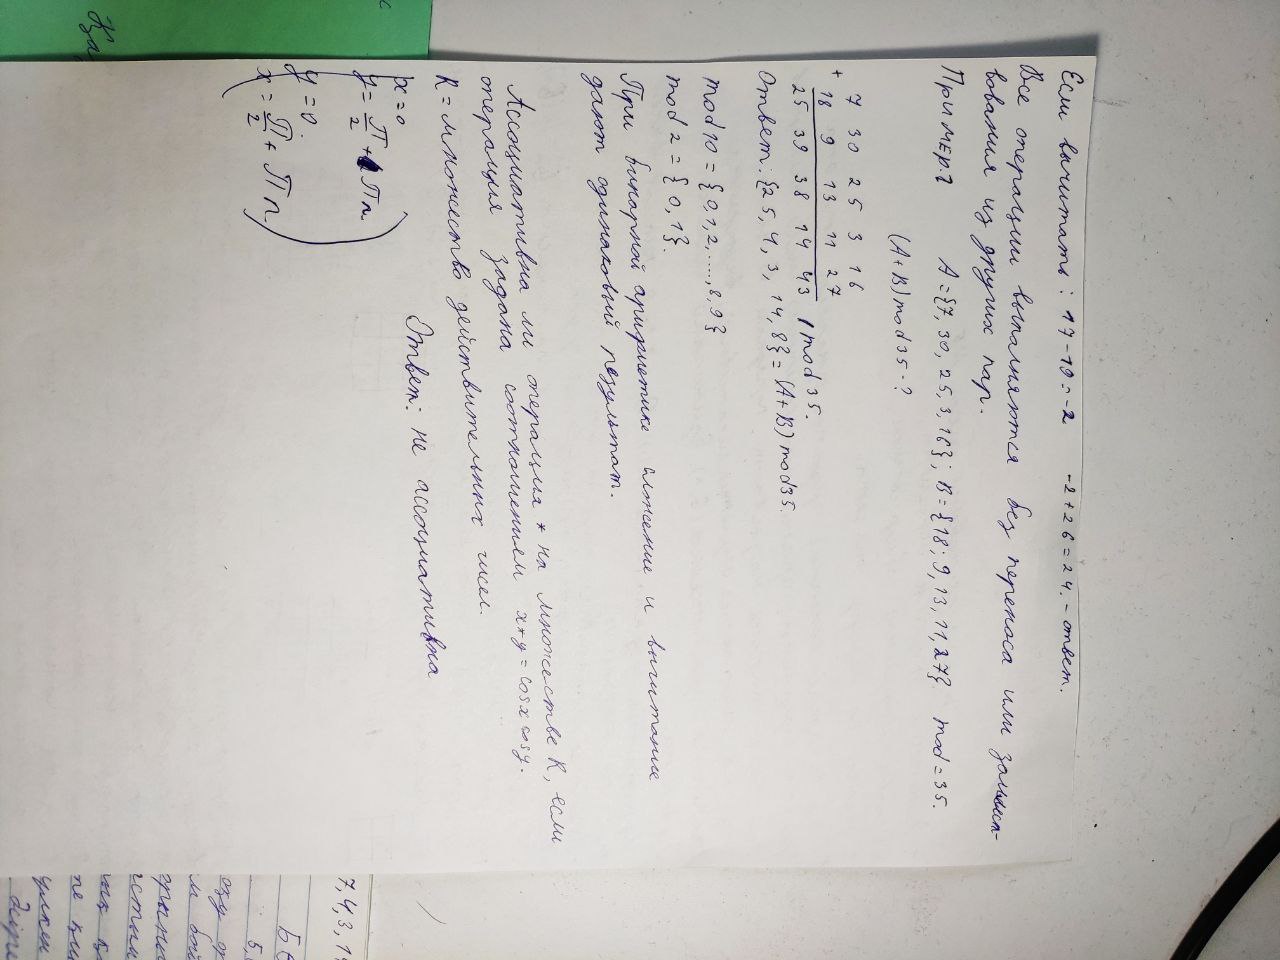 Если вычитать: 17-19=-2 -2+26=24. - ответ.
Все операции выполняются без переноса или заимст-
вования из других пар.
ПРИМЕР: A={7, 30, 25, 3, 16}; B={18; 9, 13, 11, 27} mod=35.
(A+B) mod 35 - ?
7 30 25 3 16
+ 18 9 13 11 27
25 39 38 14 43 / mod 35.
Ответ: {25, 4, 3, 14, 8} = (A+B) mod 35.
mod 10 = {0,1,2,....,8,9}
mod 2 = {0,1}.
При бинарной арифметике сложение и вычитание
дают одинаковый результат.
Ассоциативна ли операция * на множестве R, если
операция задана соотношением x*y = cosx cosy.
R = множество действительных чисел.
Ответ: не ассоциативна
x=0
y = π/2 + πn
y = 0.
x = π/2 + πn
7,4,3,1